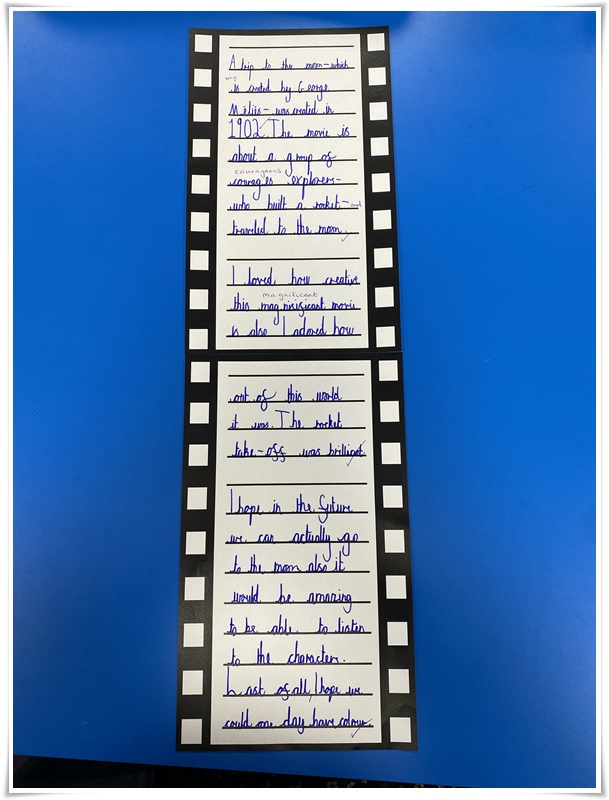 A trip to the moon-which
is created by George
Mélies- was created in
1902. The movie is
about a group of
courageous
courages explorers-
who built a rocket- and
traveled to the moon.
I loved how creative
magnificent
this magnisificant movie
is also I adored how
out of this world
it was. The rocket
take-off was brilliant.
I hope in the future
we can actually go
to the moon also it
would be amazing
to be able to listen
to the characters.
Last of all, I hope we
could one day have colour.